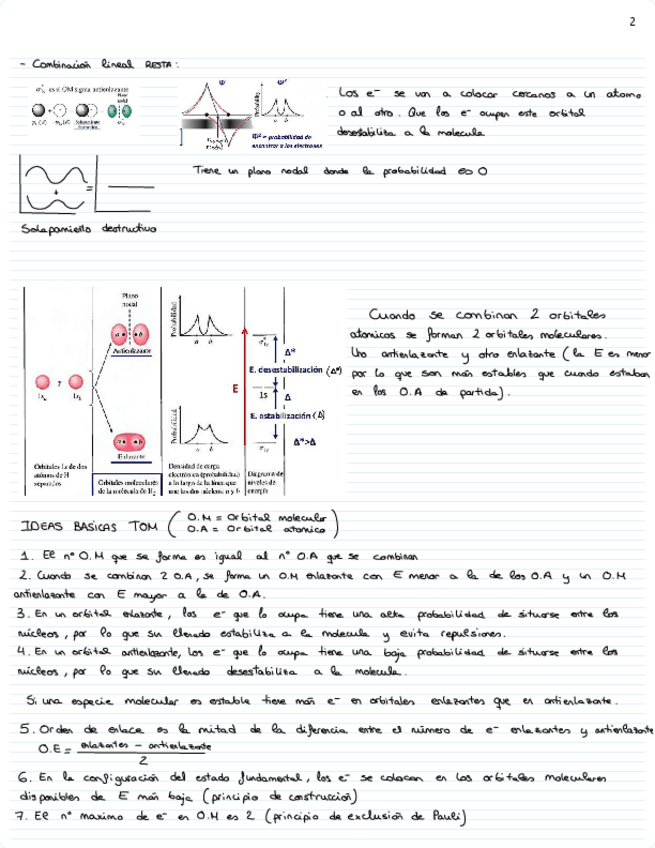 2
- Combinación lineal RESTA:
es el OM sigma antienlazante
Plano
nodal
Los e⁻ se van a colocar cercanos a un atomo
o al otro. Que los e⁻ ocupen este orbital
desestabiliza a la molecula
Probability
a b
= probabilidad de
encontrar a los electrones
Tiene un plano nodal donde la probabilidad es 0
+
=
Solapamiento destructivo
Plano
nodal
a b
Antienlazante
Probabilidad
a b
Δ*
E. desestabilización (Δ*)
E
1s
Δ
E. astabilización (Δ)
Δ*>Δ
y
a b
Enlazante
Probabilidad
a b
Orbitales 1s de dos
átomos de H
separados
Orbitales moleculares
de la molécula de H₂
Densidad de carga
electrónica (probabilidad)
a lo largo de la línea que
une los dos núcleos, a y b
Diagrama de
niveles de
energía
Cuando se combinan 2 orbitales
atomicos se forman 2 orbitales moleculares.
Uno antienlazante y otro enlazante (la E es menor
por lo que son más estables que cuando estaban
en los O.A de partida).
IDEAS BASICAS TOM ( O.M = Orbital molecular
O.A = Orbital atomico )
1. El nº O.M que se forma es igual al nº O.A que se combinan
2. Cuando se combinan 2 O.A, se forma un O.M enlazante con E menor a la de los O.A y un O.M
antienlazante con E mayor a la de O.A.
3. En un orbital enlazante, los e⁻ que lo ocupa tiene una alta probabilidad de situarse entre los
núcleos, por lo que su llenado estabiliza a la molecula y evita repulsiones.
4. En un orbital antienlazante, los e⁻ que lo ocupa tiene una baja probabilidad de situarse entre los
núcleos, por lo que su llenado desestabiliza a la molecula.
Si una especie molecular es estable tiene más e⁻ en orbitales enlazantes que en antienlazante.
5. Orden de enlace es la mitad de la diferencia entre el número de e⁻ enlazantes y antienlazante
O.E = enlazantes - antienlazante
2
6. En la configuración del estado fundamental, los e⁻ se colocan en los orbitales moleculares
disponibles de E más baja (principio de construcción)
7. El nº maximo de e⁻ en O.M es 2 (principio de exclusión de Pauli)